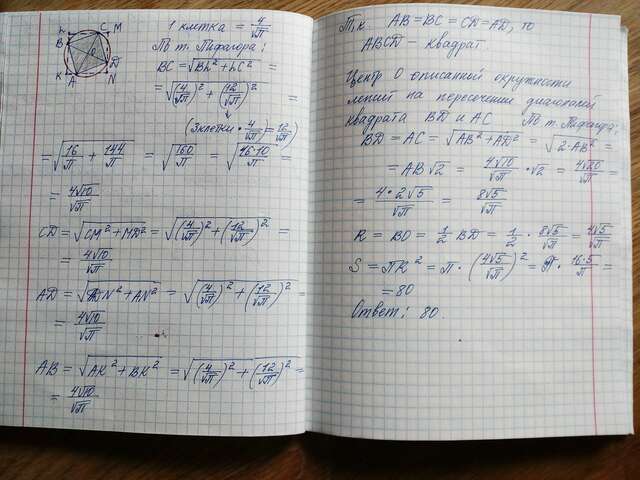 L C M
B
O
D
K A N
1 клетка = 4/√π
По т. Пифагора:
BC = √(BL² + LC²) =
= √((4/√π)² + (12/√π)²) =
(3 клетки · 4/√π = 12/√π)
= √(16/π + 144/π) = √(160/π) = √(16·10/π) =
= 4√10/√π
CD = √(CM² + MD²) = √((4/√π)² + (12/√π)²) =
= 4√10/√π
AD = √(DN² + AN²) = √((4/√π)² + (12/√π)²) =
= 4√10/√π
AB = √(AK² + BK²) = √((4/√π)² + (12/√π)²) =
= 4√10/√π
Т.к AB = BC = CD = AD, то
ABCD – квадрат
Центр O описанной окружности
лежит на пересечении диагоналей
квадрата BD и AC По т. Пифагора:
BD = AC = √(AB² + AD²) = √(2·AB²) =
= AB√2 = 4√10/√π · √2 = 4√20/√π =
= 4·2√5/√π = 8√5/√π
R = BO = 1/2 BD = 1/2 · 8√5/√π = 4√5/√π
S = πR² = π · (4√5/√π)² = π · 16·5/π =
= 80
Ответ: 80.